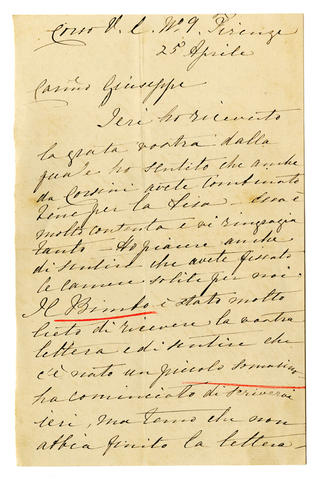 Corso V. E. No 9. Firenze
25 Aprile
Carino Giuseppe
Ieri ho ricevuto
la grata vostra dalla
quale ho sentito che anche
da Corsini avete combinato
bene per la Lisa. Essa è
molto contenta e vi ringrazia
tanto – Ho piacere anche
di sentire che avete fissato
le camere solite per noi.
Il Bimbo è stato molto
lieto di ricevere la vostra
lettera e di sentire che
c'è nato un piccolo somarino
ha cominciato di scrivervi
ieri, ma temo che non
abbia finito la lettera –